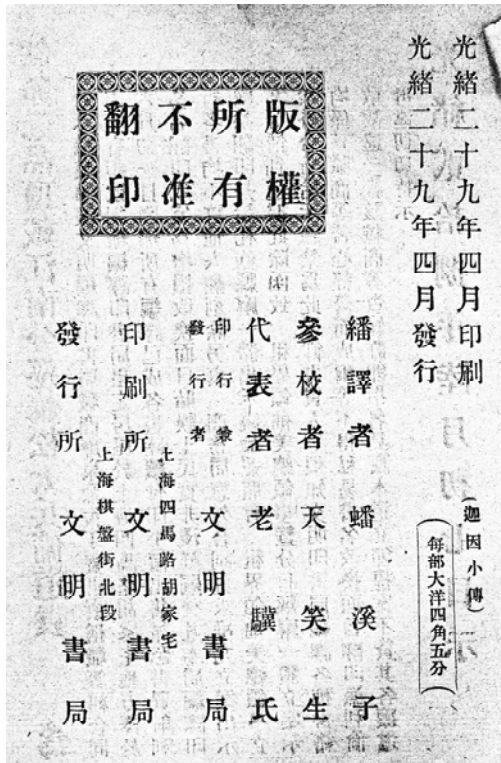 光緒二十九年四月印刷
光緒二十九年四月發行
(迦因小傳)
每部大洋四角五分
版權
所有
不准
翻印
繙譯者 蟠溪子
參校者 天笑生
代表者 老驥氏
印行兼
發行者 文明書局
上海四馬路胡家宅
印刷所 文明書局
上海棋盤街北段
發行所 文明書局